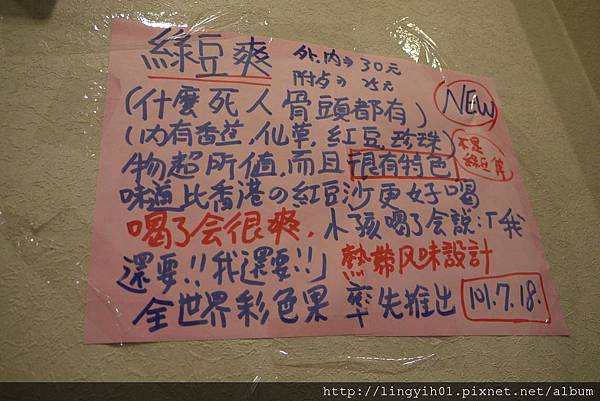 綠豆爽 外.內⇒30元
附点⇒25元
NEW
(什麼死人骨頭都有)
(內有香芒,仙草,紅豆,珍珠)
不是綠豆算
物超所值,而且很有特色
味道比香港の紅豆沙更好喝
喝了会很爽,小孩喝了会說:「我
還要!!我還要!!」熱帶风味設計
全世界彩色果 率先推出 101.7.18.
http://lingyih01.pixnet.net/album